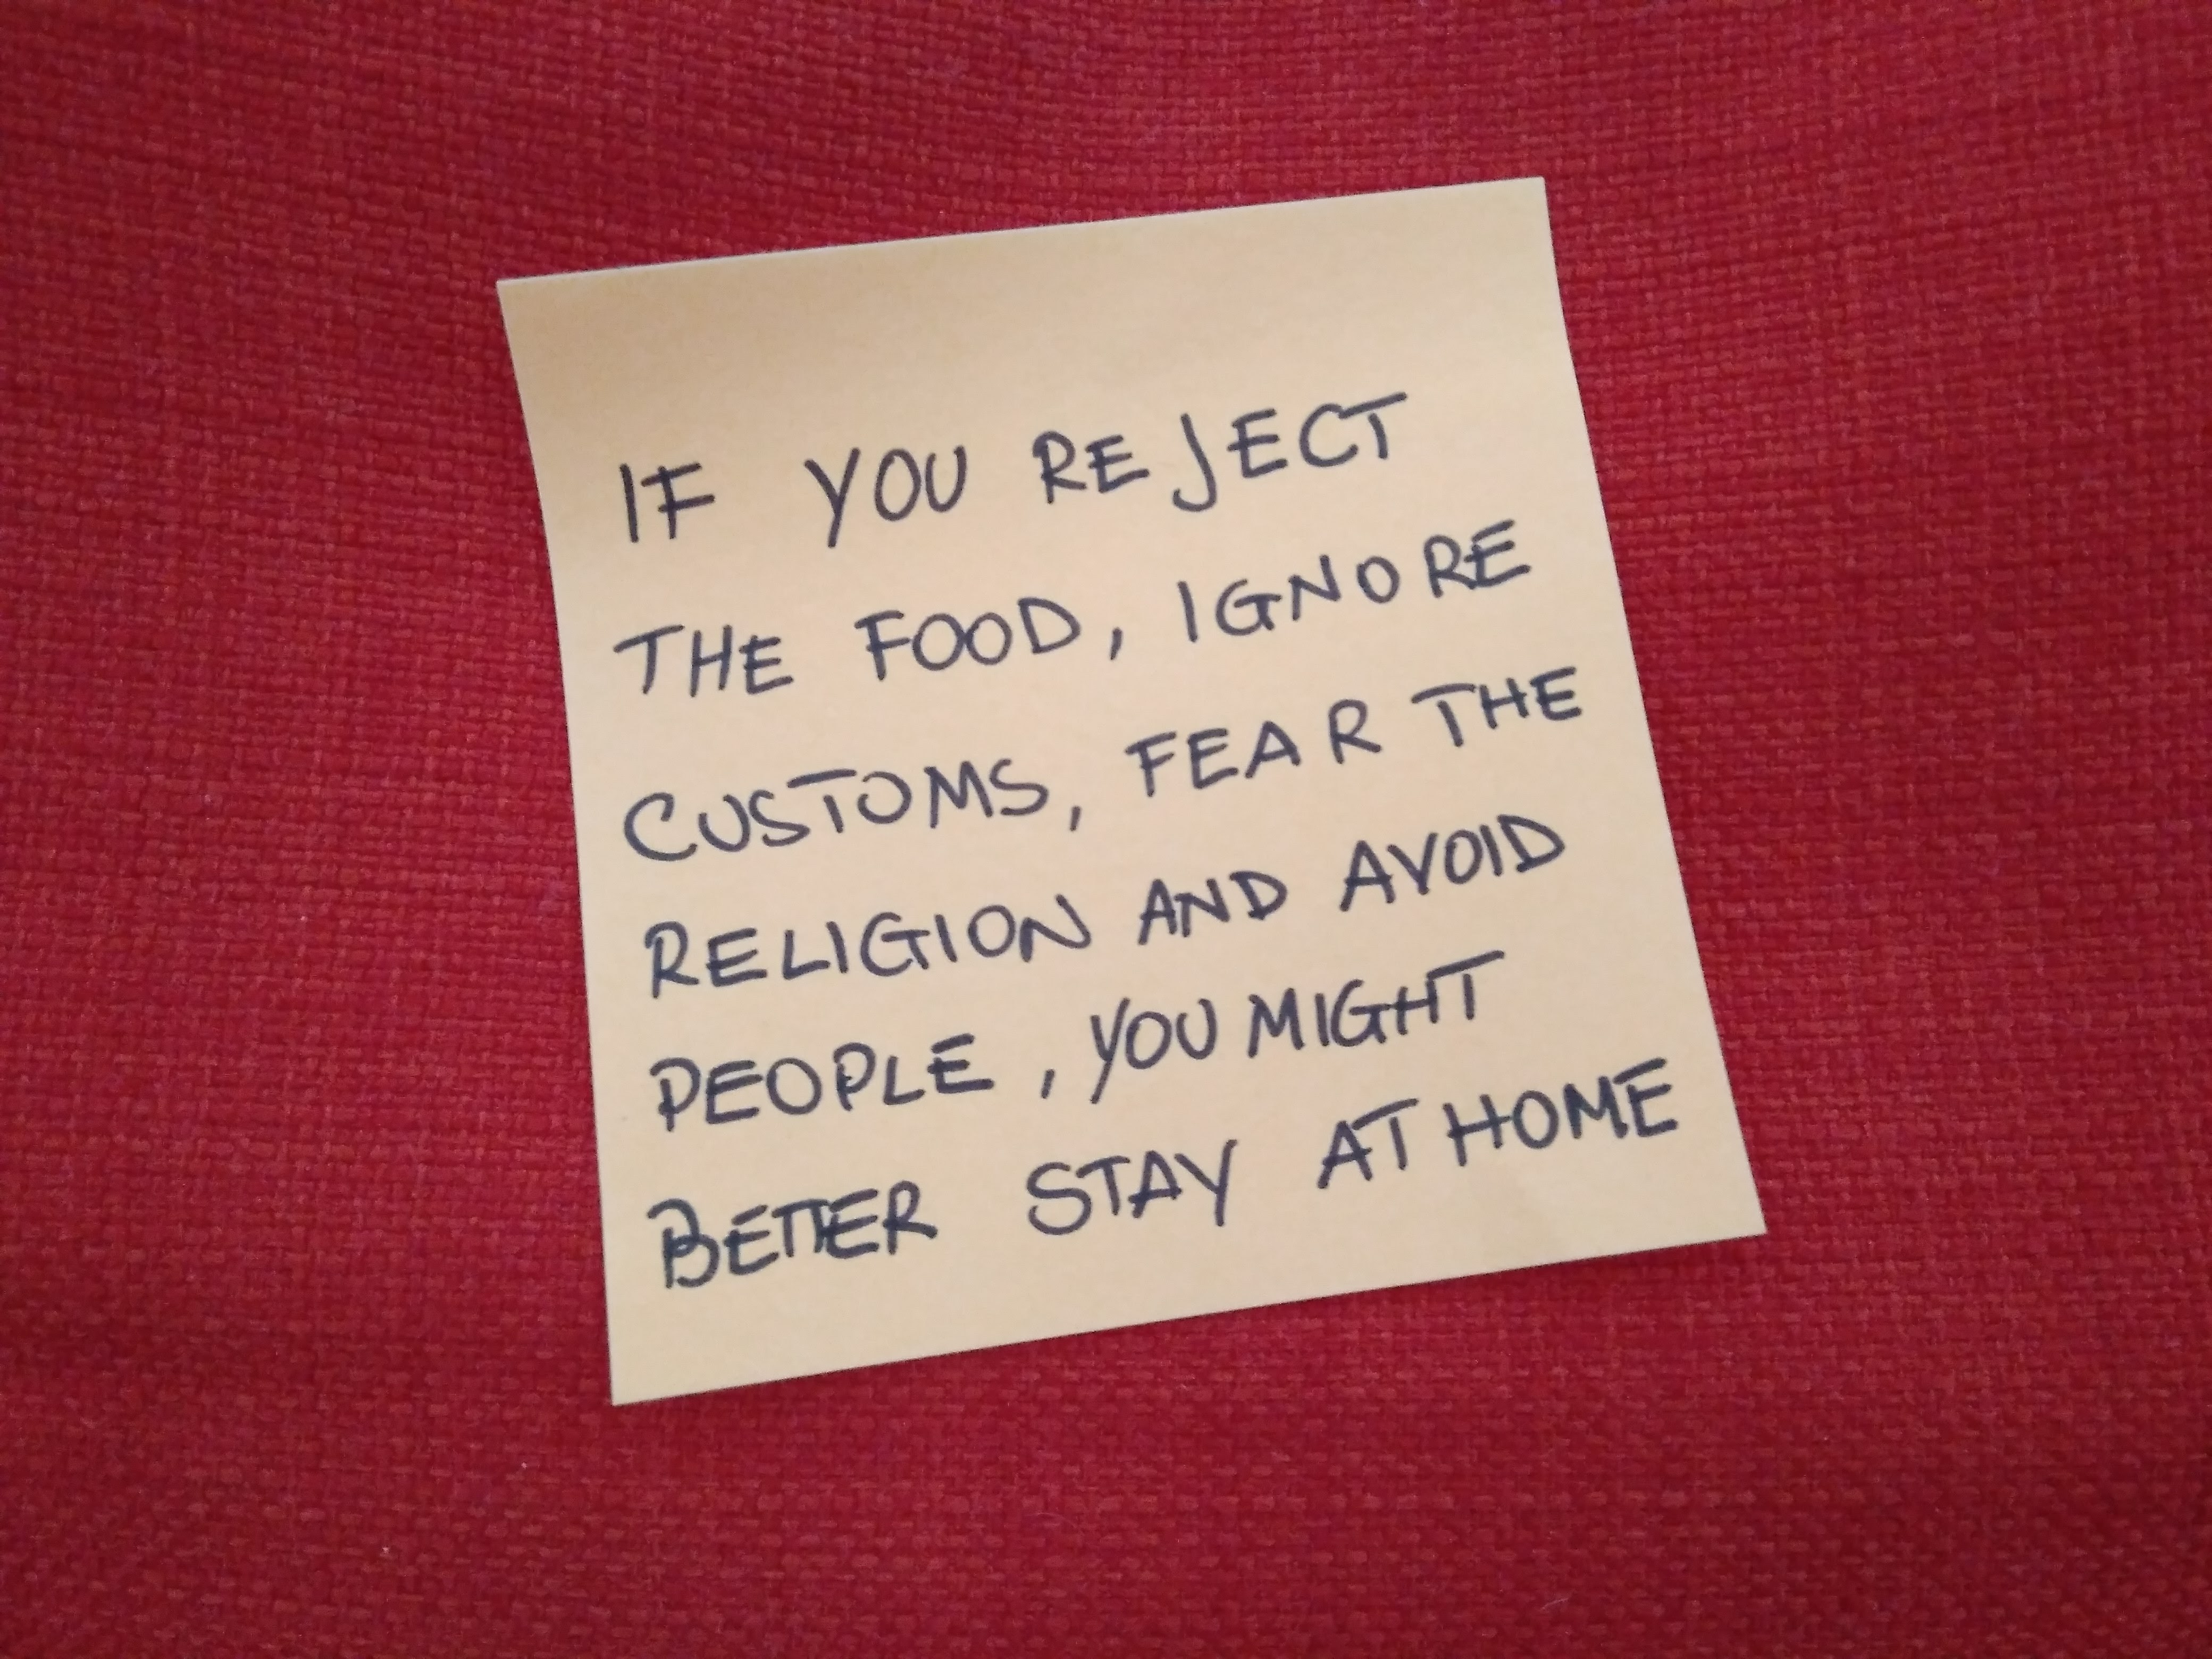 IF YOU REJECT
THE FOOD, IGNORE
CUSTOMS, FEAR THE
RELIGION AND AVOID
PEOPLE, YOU MIGHT
BETTER STAY AT HOME